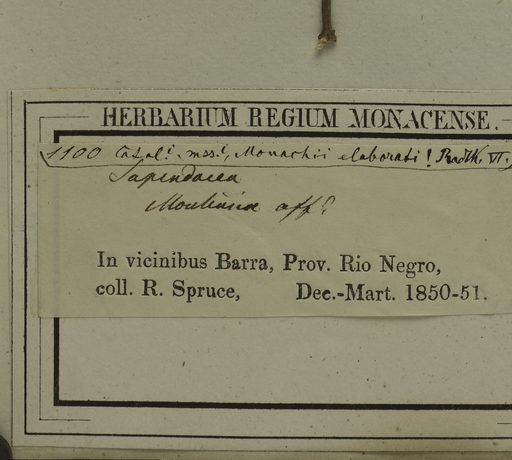 HERBARIUM REGIUM MONACENSE.
1100 Catal.i mss.i, Monachii elaborati! Radlk. VI.
Sapindacea
Moulinia aff.?
In vicinibus Barra, Prov. Rio Negro,
coll. R. Spruce, Dec.-Mart. 1850-51.